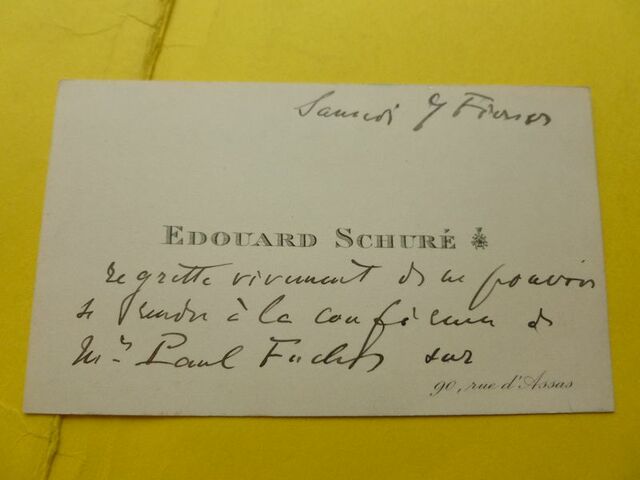 Samedi 7 Février
EDOUARD SCHURÉ
regrette vivement de ne pouvoir
se rendre à la conférence de
Mr Paul Fuchs sur
90, rue d'Assas